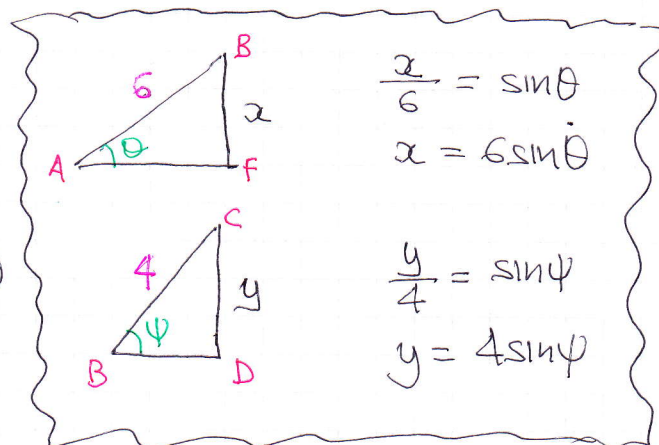 B
6
x
θ
A
F
x/6 = sinθ
x = 6sinθ
C
4
y
ψ
B
D
y/4 = sinψ
y = 4sinψ